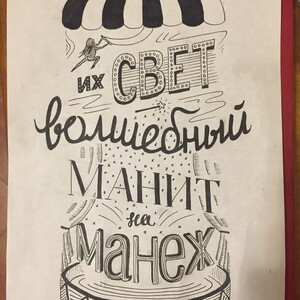 их СВЕТ
волшебный
МАНИТ
на
манеж